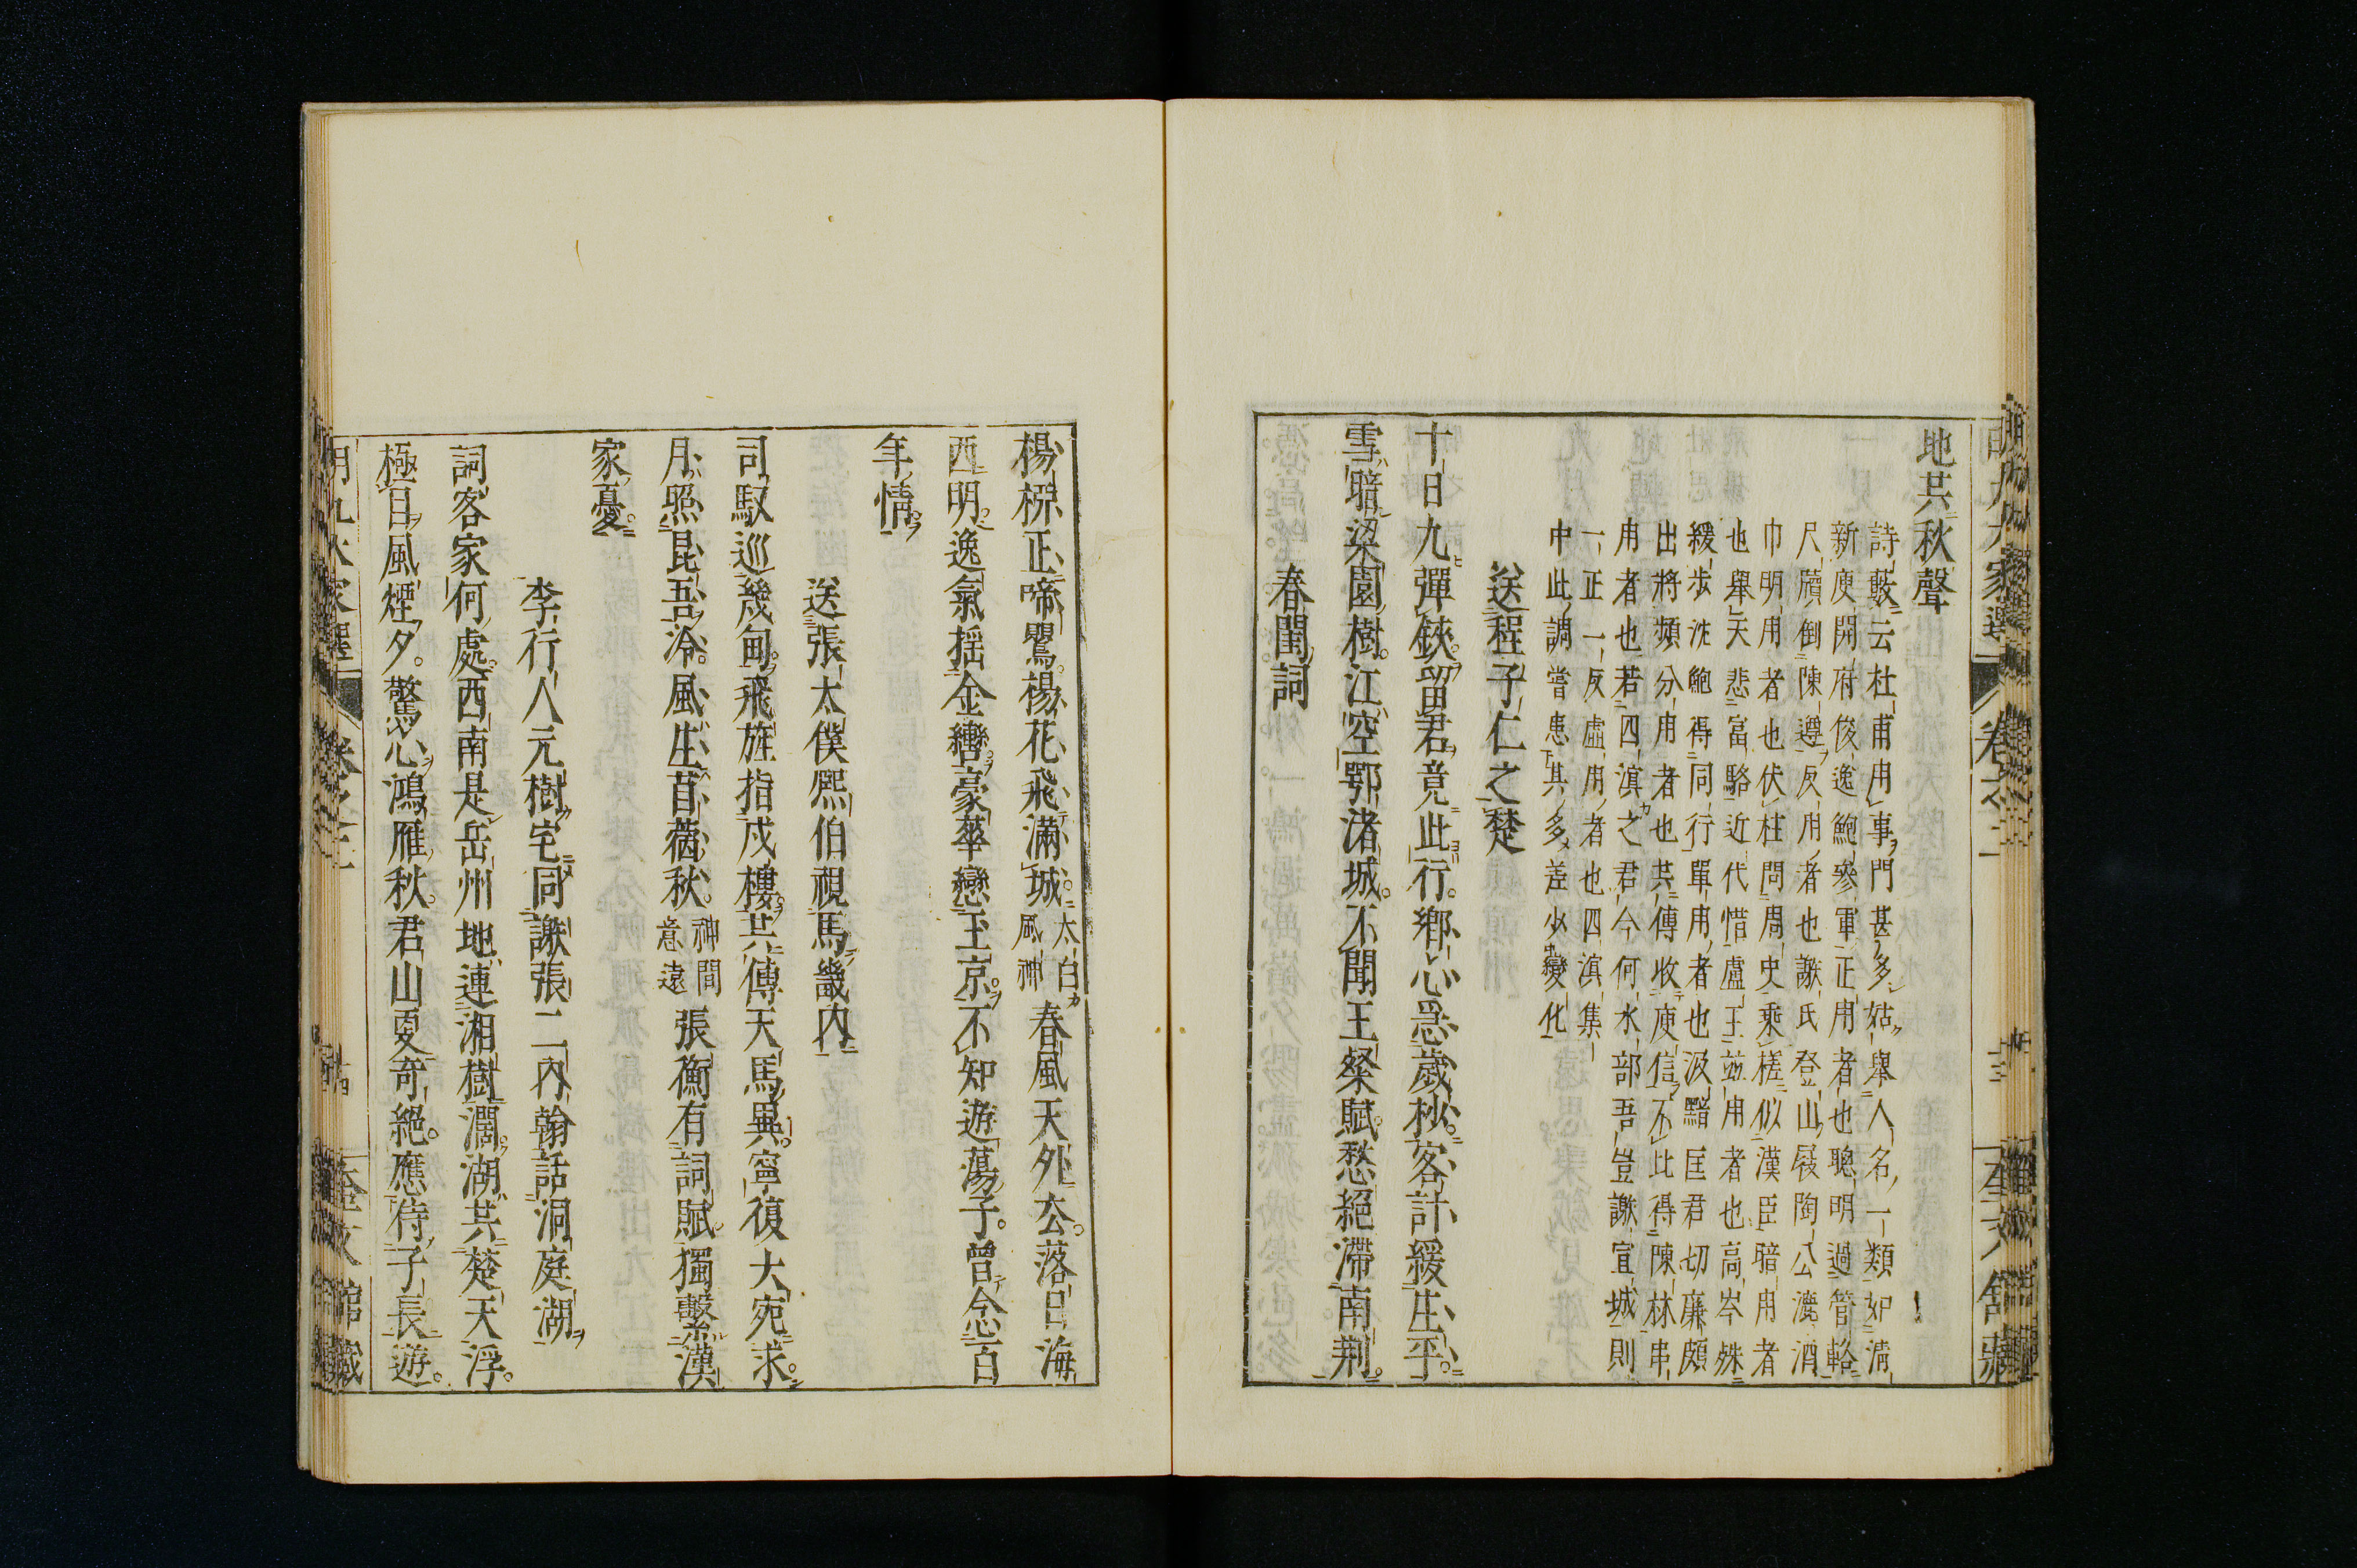 地共秋聲
詩藪云杜甫用事門甚多姑舉人名一類如清
新庾開府俊逸鮑參軍正用者也聰明過管輅
尺牘倒陳遵反用者也謝氏登山屐陶公漉酒
巾明用者也伏柱問周史乘槎似漢臣暗用者
也舉天悲富駱近代惜盧王並用者也高岑殊
緩步沈鮑得同行單用者也汲黯匡君切廉頗
出將頻分用者也共傳收庾信不比得陳林串
用者也若四溟之君今何水部吾豈謝宣城則
一正一反虛用者也四溟集
中此調嘗患其多差少變化
送程子仁之楚
十日九彈鋏留君竟此行鄉心悬歲杪客計緩生平
雪暗梁園樹江空鄂渚城不聞王粲賦愁絕滯南荆
春閨詞
楊栁正啼鶯楊花飛滿城
太白
風神
春風天外去落日海
西明逸氣搖金轡豪華戀玉京不知遊蕩子曾念百
年情
送張太僕熈伯視馬畿内
司馭巡幾甸飛旌指戍樓共傳天馬異寧復大宛求
月照昆吾冷風生苜蓿秋
神間
意遠
張衡有詞賦獨繫漢
家憂
李行人元樹宅同謝張二内翰話洞庭湖
詞客家何處西南是岳州地連湘樹濶湖共楚天浮
極目風煙夕驚心鴻雁秋君山更奇絕應待子長遊